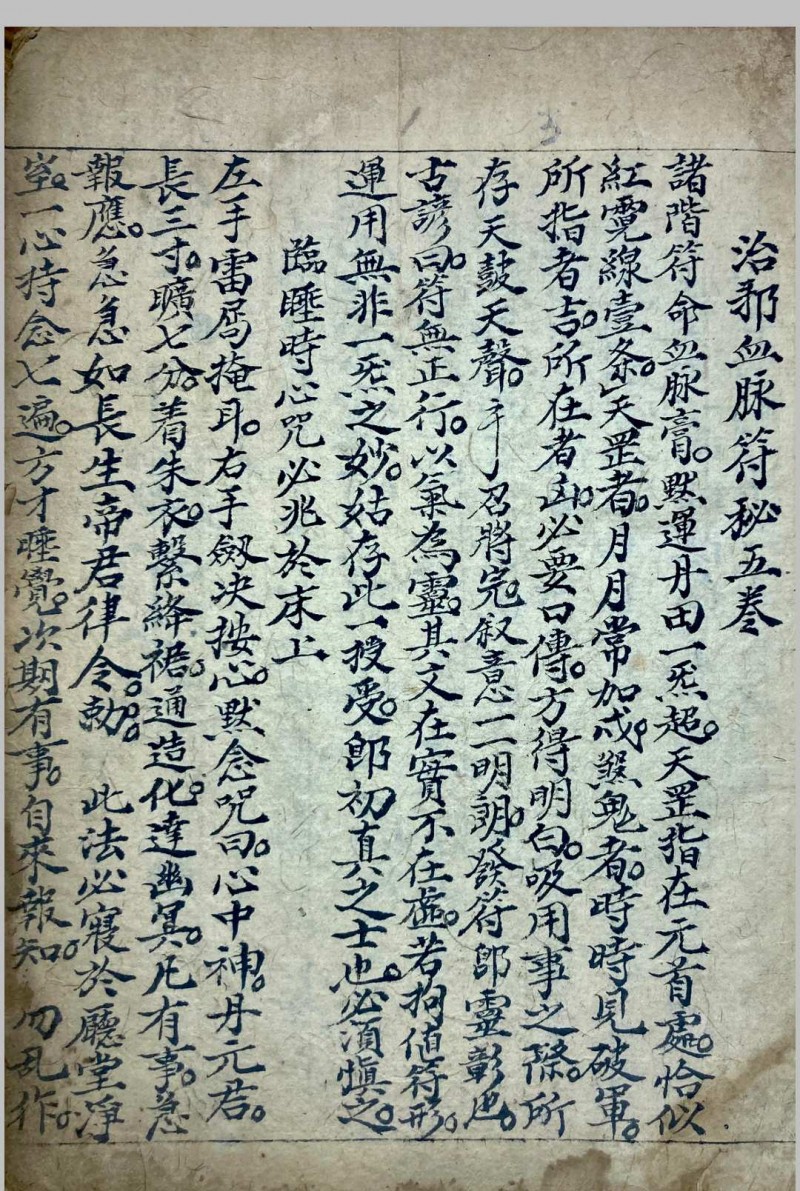 治邪血脉符秘五卷
諸階符命血脉膏。默運丹田一炁超。天罡指在元首處。恰似
紅霓線壹条。天罡者。月月常加戍。煞鬼者。時時見破軍。
所指者吉。所在者凶。必要口傳。方得明白。吸用事之際。所
存天鼓天聲。召將完。叙意一二明朗。發符即靈彰也。
古諺曰。符無正行。以氣為靈。其文在實不在虛。若拘值符形。
運用無非一炁之妙。姑存此一授受。即初真之士也。必須慎之。
臨睡時心咒必兆於床上
左手雷局掩耳。右手劔决按心。默念咒曰。心中神。丹元君。
長三寸。曠七分。着朱衣。繫絳裙。通造化。達幽冥。凡有事。急
報應。急急如長生帝君律令。勅。 此法必寢於廳堂淨
室。一心持念七遍。方才睡覺。次期有事。自來報知。勿乱作。